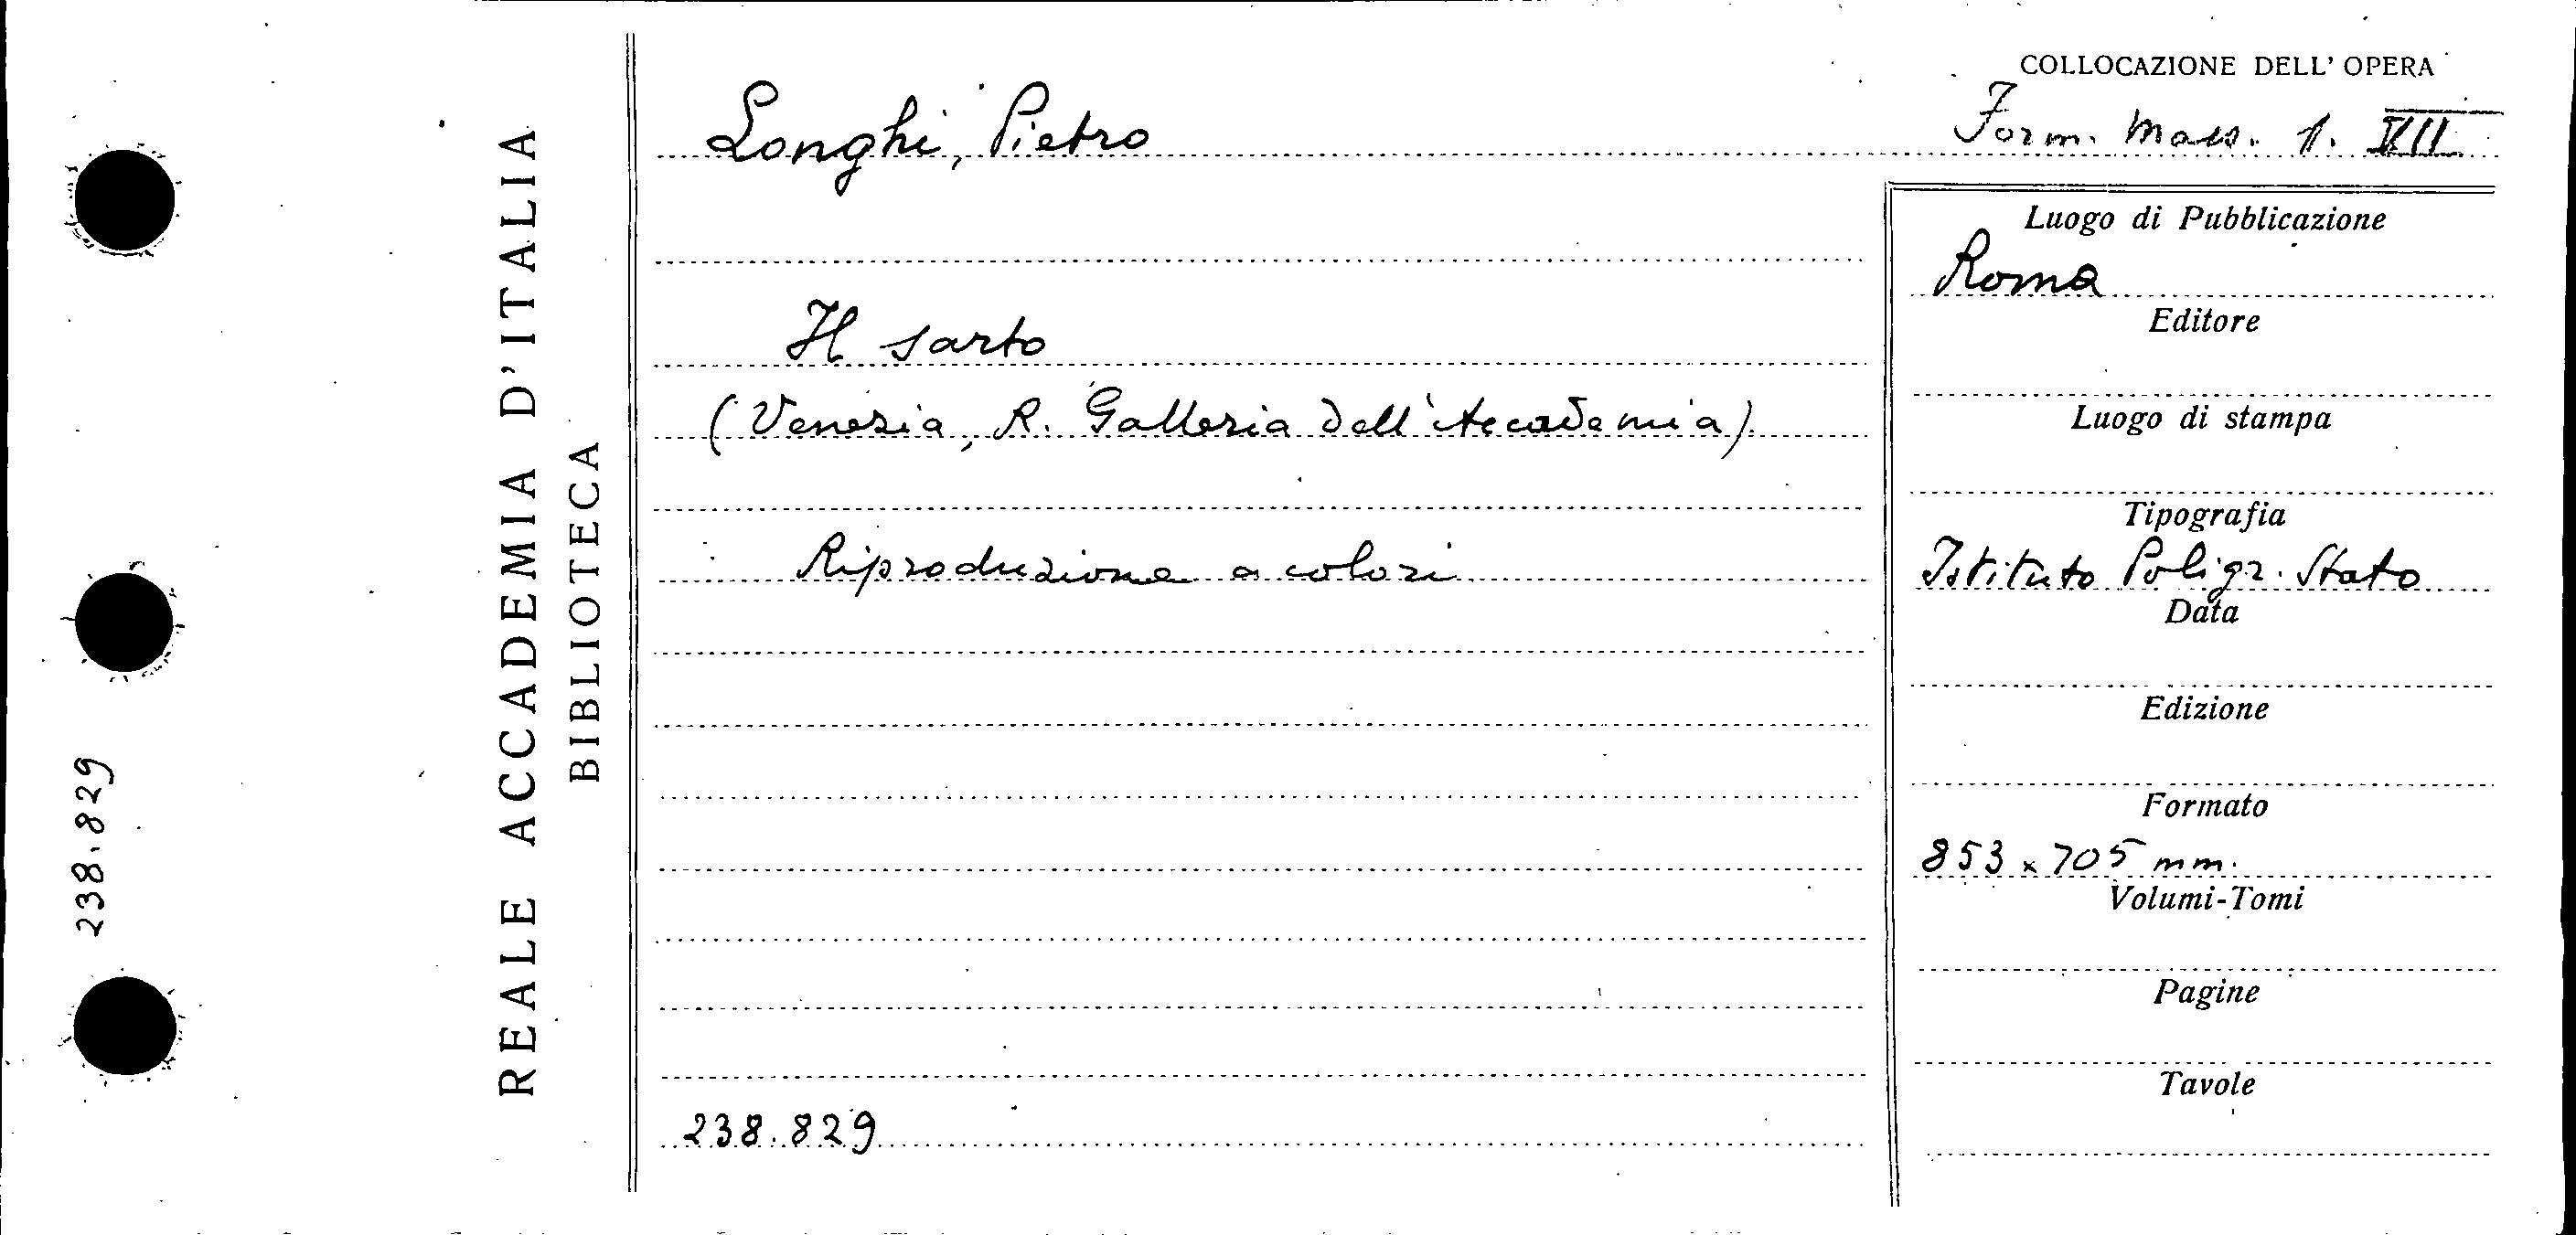 238.829
REALE ACCADEMIA D'ITALIA
BIBLIOTECA
Longhi, Pietro
Il sarto
(Venezia, R. Galleria dell'Accademia)
Riproduzione a colori
238.829
COLLOCAZIONE DELL'OPERA
Form. Mass. 1. VII
Luogo di Pubblicazione
Roma
Editore
Luogo di stampa
Tipografia
Istituto Poligr. Stato
Data
Edizione
Formato
853 x 705 mm.
Volumi-Tomi
Pagine
Tavole